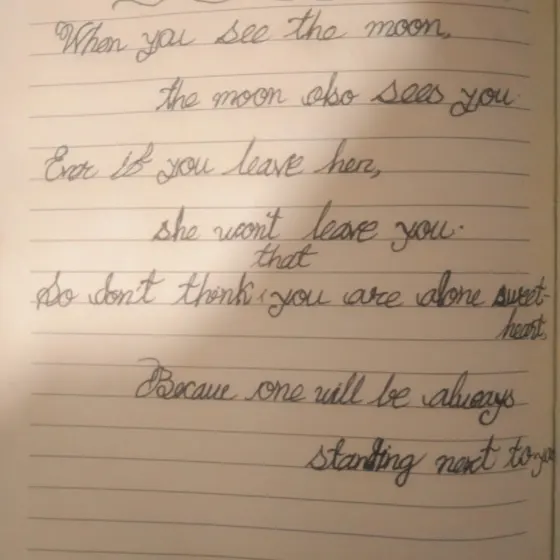 When you see the moon,
the moon also sees you.
Ever if you leave her,
she won't leave you.
that
So don't think you are alone sweet-
heart,
Becaue one will be always
standing next to you